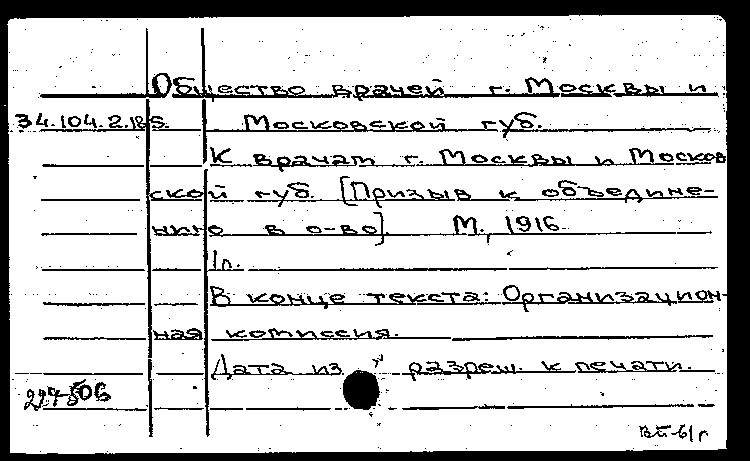 Общество врачей г. Москвы и
34.104.2.185. Московской губ.
К врачам г. Москвы и Москов
ской губ. [Призыв к объедине-
нию в о-во]. М., 1916.
1л.
В конце текста: Организацион-
ная комиссия.
Дата из разреш. к печати.